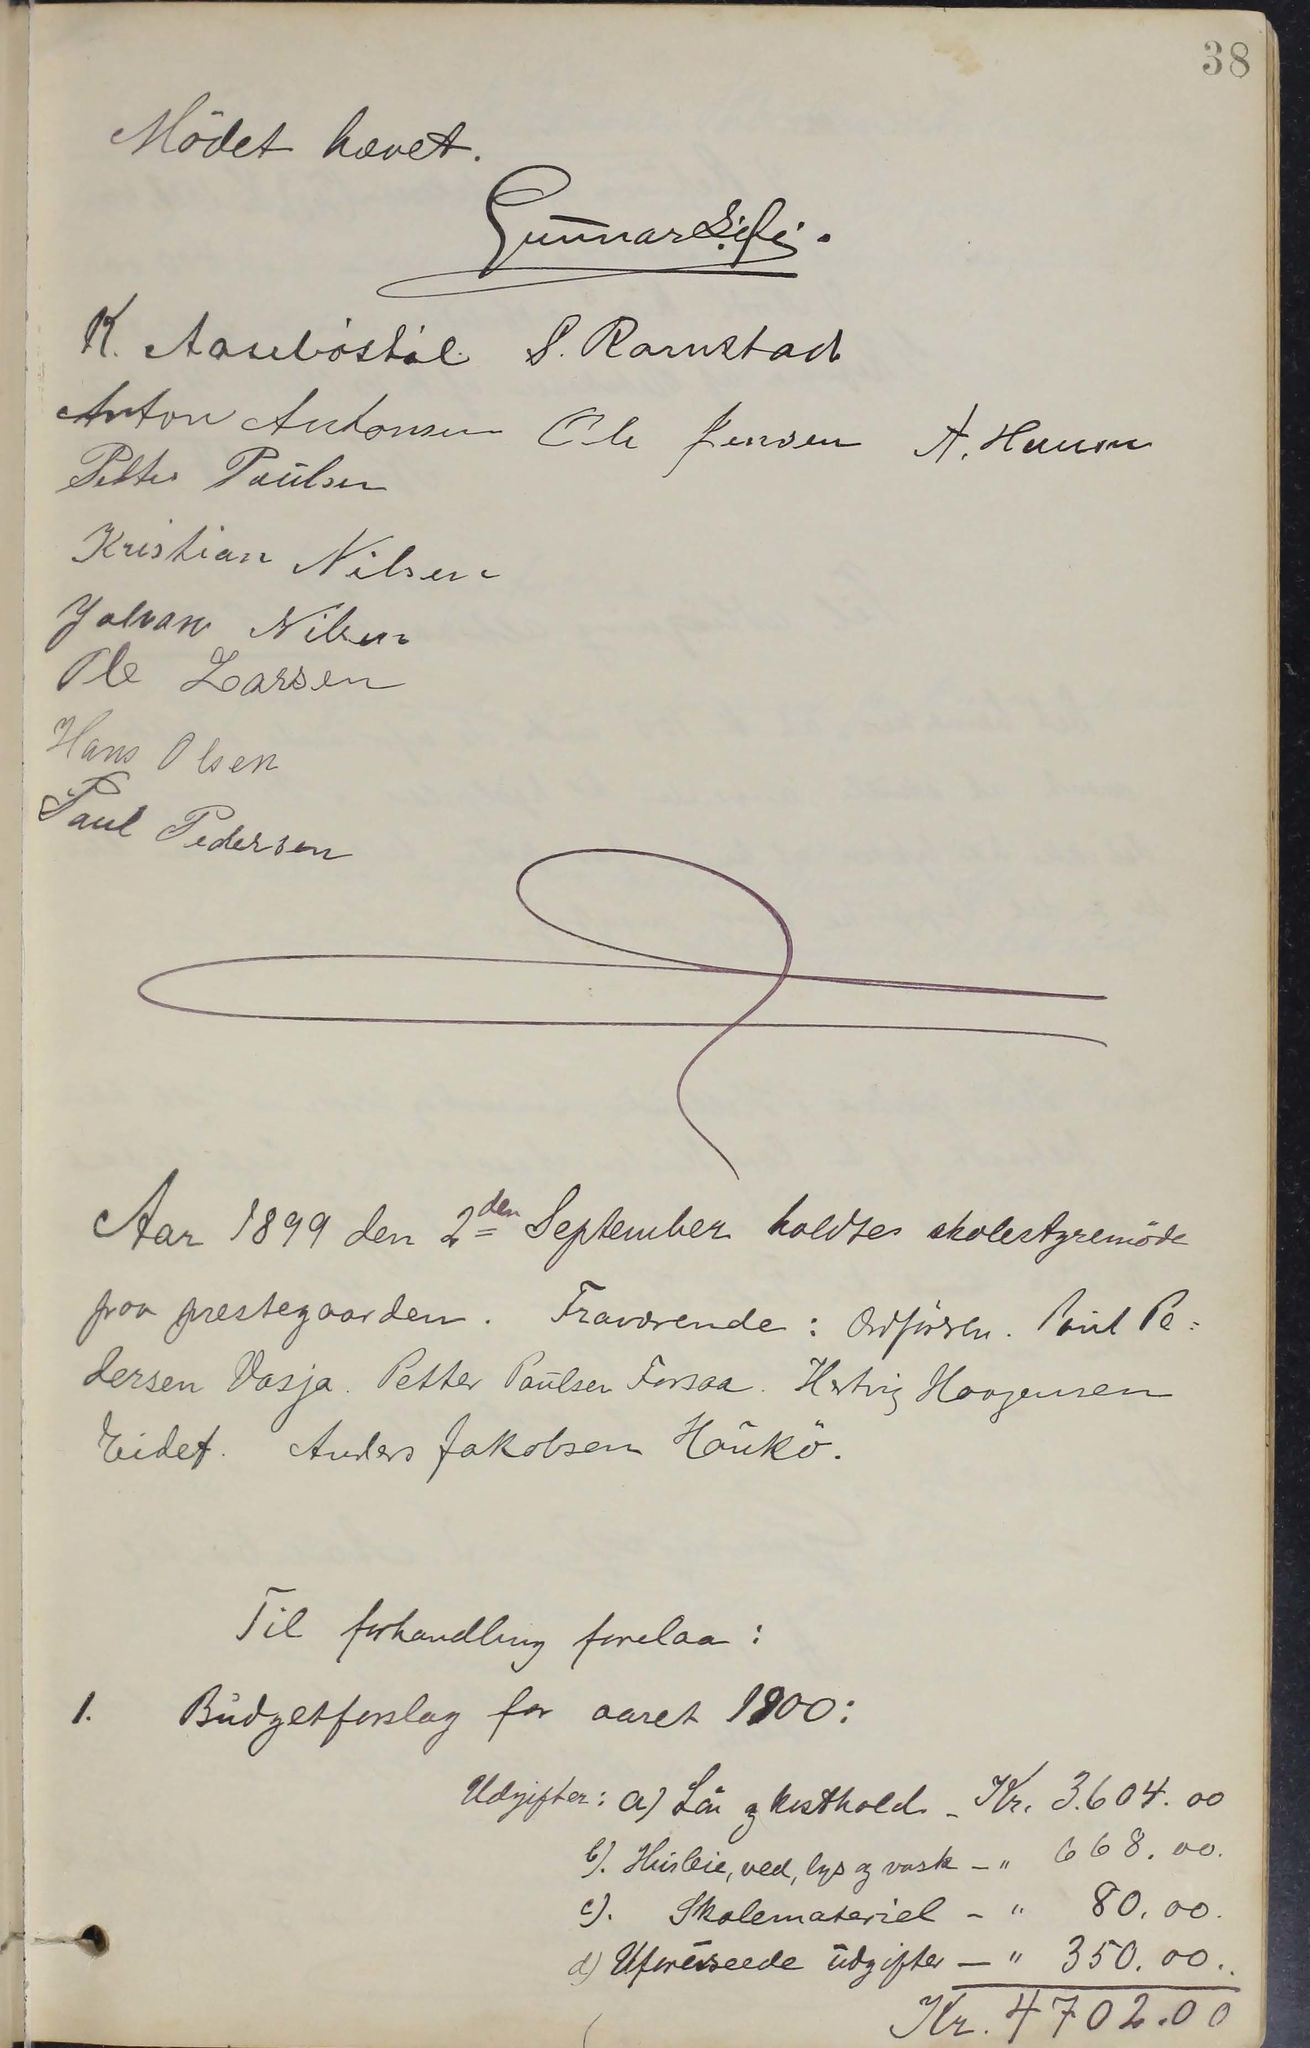 38
Mödet hævet.
Gunnar
K. Aaseböstöl S. Ramstad
Anton Antonsen Ole Jensen A. Hansen
Petter Paulsen
Kristian Nilsen
Johan Nilsen
Ole Larsen
Hans Olsen
Paul Pedersen
Aar 1899 den 2den September holdtes skolestyremöde
paa prestegaarden. Fraværende: Ordföreren. Paul Pe-
dersen Vasja. Petter Paulsen Forsaa. Hertvig Haagensen
Eidet. Anders Jakobsen Haukö.
Til forhandling forelaa:
1. Budgetforslag for aaret 1900:
Udgifter: a) Lön og kosthold - Kr. 3.604.00
b). Husleie, ved, lys og vask - " 668.00.
c). Skolemateriel - " 80.00.
d) Uforudseede udgifter - " 350.00.
Kr. 4702.00